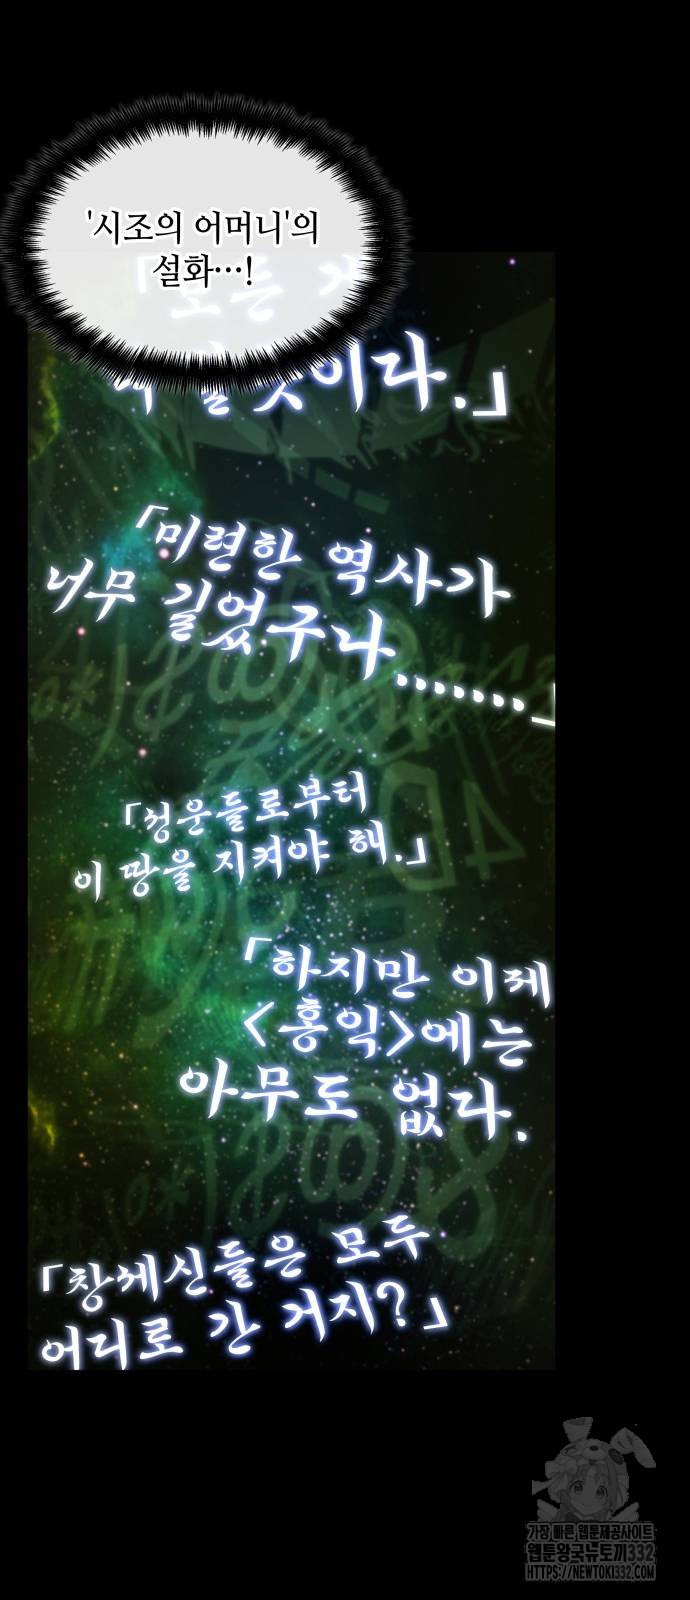 '시조의 어머니'의
설화…!
「모든
이다.」
「미련한 역사가
너무 길었구나.......」
「청운들로부터
이 땅을 지켜야 해.」
「하지만 이제
<홍익>에는
아무도 없다.
「창세신들은 모두
어디로 간 거지?」
가장 빠른 웹툰제공사이트
웹툰왕국뉴토끼332
HTTPS://NEWTOKI332.COM